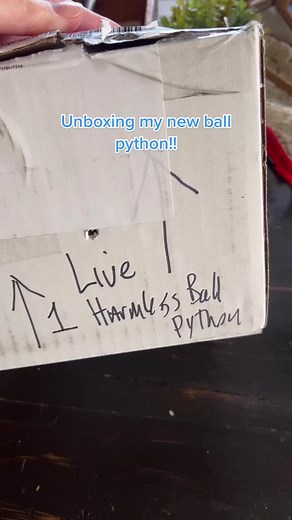 Unboxing my new ball
python!!
Live
1 Harmless Ball
Python